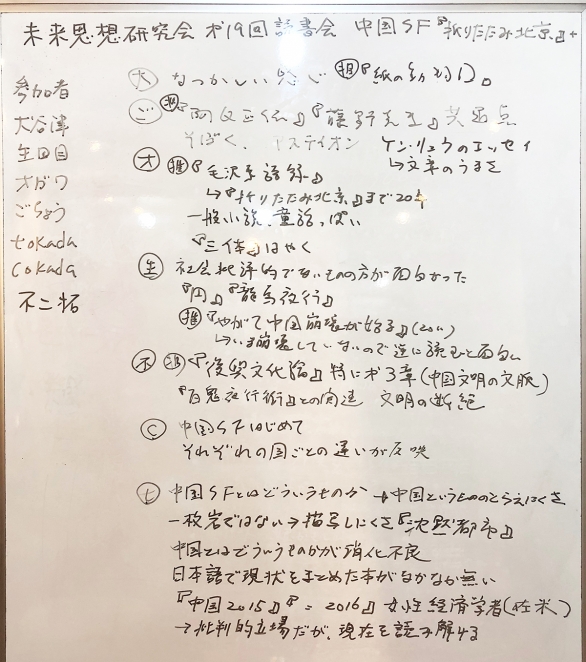 未来思想研究会 才19回 読書会 中国SF『折りたたみ北京』+
参加者
大谷津
生田目
オガワ
ごちょう
tokada
cokada
不二拓
大 なつかしい感じ 推『紙の動物園』
ご 推『阿Q正伝』『藤野先生』共通点
そぼく、 ケン・リュウのエッセイ
→文章のうまさ
オ 推『毛沢東語録』
↳『折りたたみ北京』まで20年
一般小説、童話っぽい
『三体』はやく
生 社会批評的でないものの方が面白かった
『円』『龍馬夜行』
推『やがて中国崩壊が始る』(2011)
→いま崩壊していないので逆に読むと面白い
不 推『復興文化論』特に才3章(中国文明の文脈)
『百鬼夜行街』との関連 文明の断絶
C 中国SFはじめて
それぞれの国ごとの違いが反映
t 中国SFとはどういうものか →中国というもののとらえにくさ
一枚岩ではない→描写しにくさ『沈黙都市』
中国とはどういうものかが消化不良
日本語で現状をまとめた本がなかなか無い
『中国2015』『 = 2016』女性経済学者(在米)
→批判的立場だが、現在を読み解ける